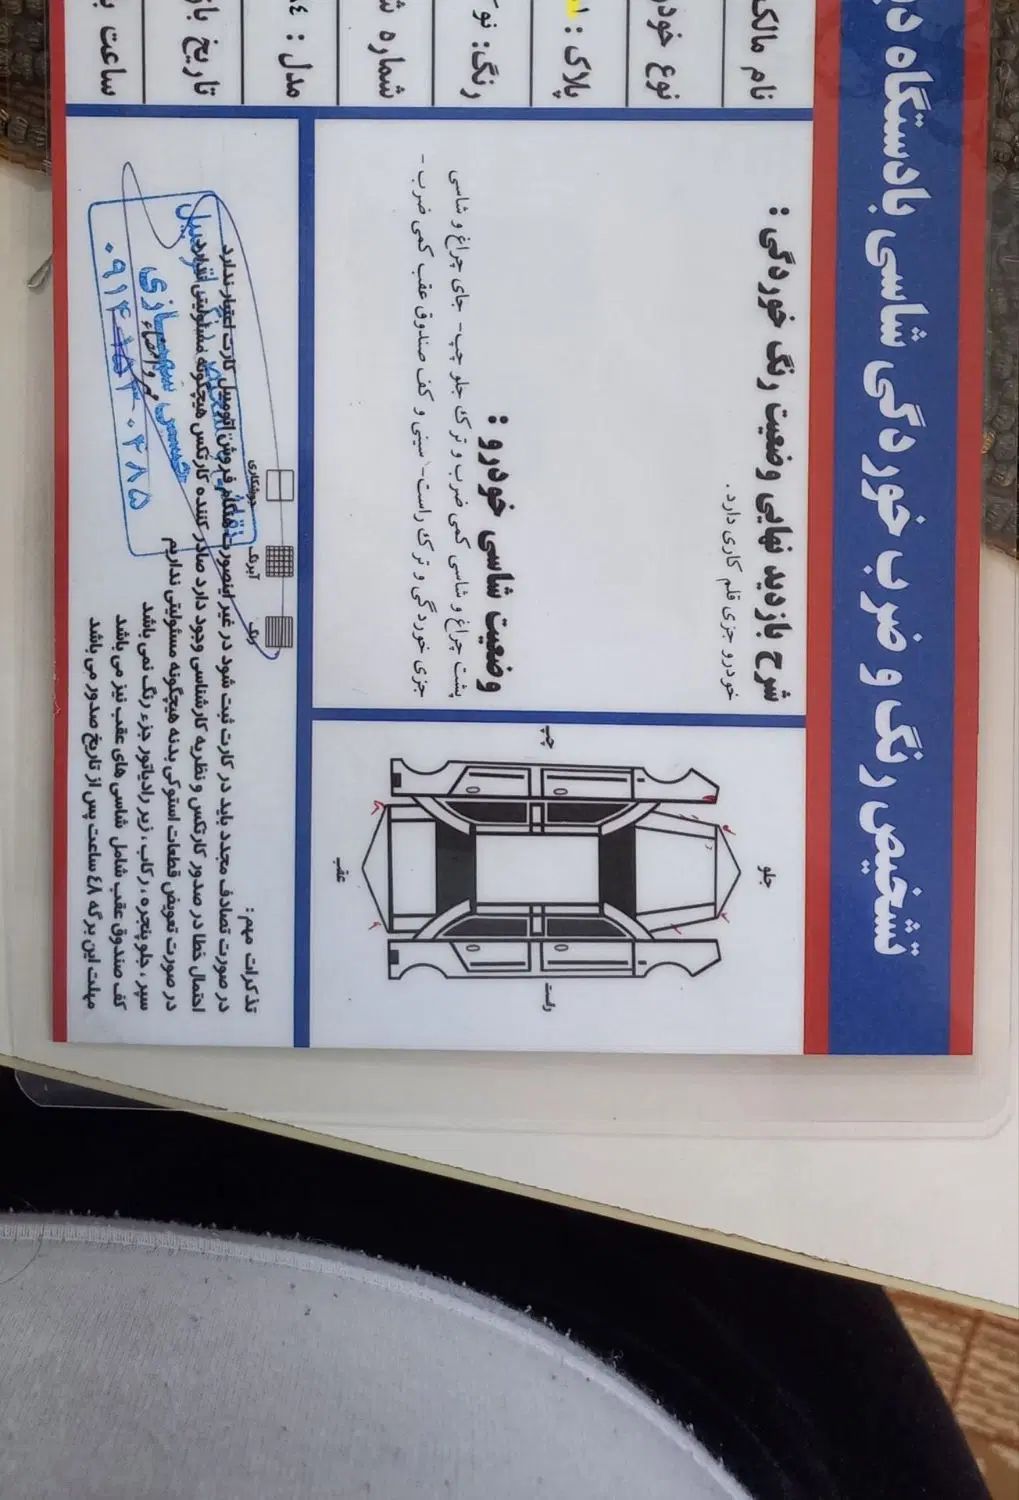 تشخیص رنگ و ضرب خوردگی شاسی بادستگاه
نام مالک
نوع
پلاک :
رنگ:
شماره
مدل :
تاریخ
ساعت
شرح بازدید نهایی وضعیت رنگ خوردگی :
خودرو جزی قلم کاری دارد.
وضعیت شاسی خودرو :
پشت چراغ و شاسی کمی ضرب و ترک جلو چپ- جای چراغ و شاسی
جزی خوردگی و ترک راست- سینی و کف صندوق عقب کمی ضرب-
جلو
چپ
راست
عقب
رنگ
آبرنگ
جوشکاری
تذکرات مهم :
در صورت تصادف مجدد باید در کارت ثبت شود در غیر اینصورت هنگام فروش اتومبیل کارت اعتبار ندارد
احتمال خطا در صدور کارتکس و نظریه کارشناسی وجود دارد صادر کننده کارتکس هیچگونه مسئولیتی ندارد
در صورت تعویض قطعات استوکی بدنه هیچگونه مسئولیتی نداریم
سپر ، جلو پنجره ، رکاب ، زیر رادیاتور جزء رنگ نمی باشد
کف صندوق عقب شامل شاسی های عقب نیز می باشد
مهلت این برگه ٤٨ ساعت پس از تاریخ صدور می باشد
مهر و امضاء